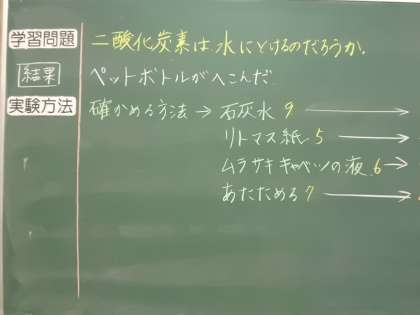 学習問題 二酸化炭素は水にとけるのだろうか.
結果 ペットボトルがへこんだ.
実験方法 確かめる方法 → 石灰水 9 →
リトマス紙 5 →
ムラサキキャベツの液 6 →
あたためる 7 →